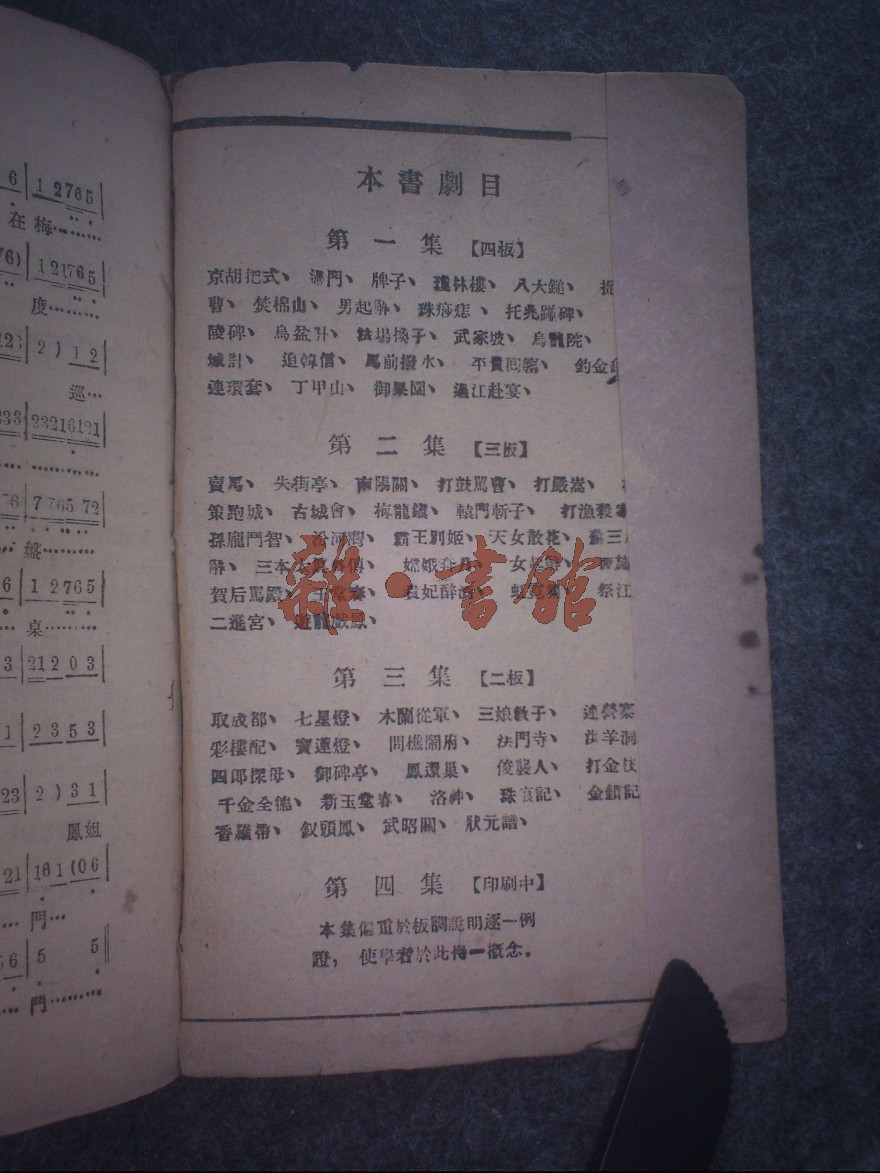 6 | 1 2765 |
在梅………
76) | 12 1765 |
度………
123 | 2 ) 1 2
巡…
233 | 23216121
76 | 7 765 72
盤………
6 | 1 2765 |
桌………
3 | 212 0 3
1 | 2 3 5 3
23 | 2 ) 3 1
鳳姐
21 | 161 (06
門…
56 | 5 5
門………
本書劇目
第一集【四板】
京胡把式、過門、牌子、瓊林樓、八大鎚、捉
曹、焚棉山、男起解、珠痧痣、托兆踫碑、
陵碑、烏盆計、法場換子、武家坡、烏龍院、
城計、追韓信、馬前撥水、平貴回窰、釣金
連環套、丁甲山、御果園、過江赴宴、
第二集【三板】
賣馬、失街亭、南陽關、打鼓罵曹、打嚴嵩、
策跑城、古城會、梅龍鎮、轅門斬子、打漁殺家
孫龐鬥智、汾河灣、霸王別姬、天女散花、蘇三
解、三本太真外傳、嫦娥奔月、女起解、
賀后罵殿、玉堂春、貴妃醉酒、虹霓關、祭江
二進宮、遊龍戲鳳、
雜·書館
第三集【二板】
取成都、七星燈、木蘭從軍、三娘教子、連營寨
彩樓配、寶蓮燈、問樵鬧府、法門寺、牧羊洞
四郎探母、御碑亭、鳳還巢、俊襲人、打金枝
千金全德、新玉堂春、洛神、珠痕記、金鎖記
香羅帶、釵頭鳳、武昭關、狀元譜、
第四集【印刷中】
本集偏重於板調說明逐一例
證，使學者於此得一概念.